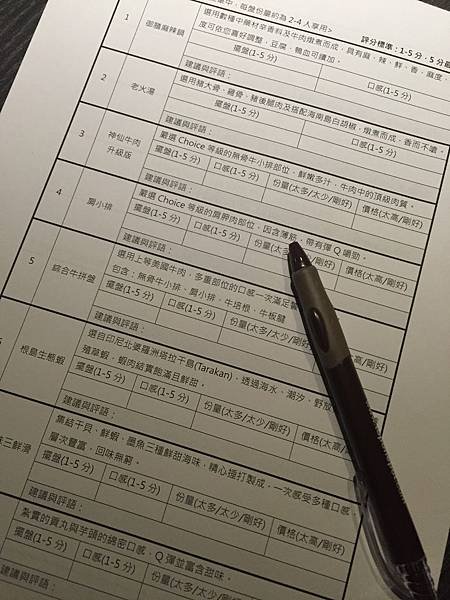 單中，每盤份量約為 2-4 人享用>
評分標準：1-5 分，5 分最
1
御膳麻辣鍋
選用數種中藥材辛香料及牛肉燉煮而成，具有麻、辣、鮮、香，麻度、
度可依您喜好調整，豆腐、鴨血可續加。
擺盤(1-5 分)
口感(1-5 分)
建議與評語：
2
老火湯
選用豬大骨、雞骨、豬後腿肉及搭配海南島白胡椒，燉煮而成，香而不嗆。
擺盤(1-5 分)
口感(1-5 分)
建議與評語：
3
神仙牛肉
升級版
嚴選 Choice 等級的無骨牛小排部位，鮮嫩多汁，牛肉中的頂級肉質。
擺盤(1-5 分)
口感(1-5 分)
份量(太多/太少/剛好)
價格(太高/剛好)
建議與評語：
4
肩小排
嚴選 Choice 等級的肩胛肉部位，因含薄筋，帶有彈 Q 嚼勁。
擺盤(1-5 分)
口感(1-5 分)
份量(太多
剛好)
價格(太高/剛好)
建議與評語：
5
綜合牛拼盤
選用上等美國牛肉，多重部位的口感一次滿足
包含：無骨牛小排、肩小排、牛培根、牛板腱
擺盤(1-5 分)
口感(1-5 分)
份量(太多/太少/剛好)
剛好)
建議與評語：
根島生態蝦
選自印尼北婆羅洲塔拉干島(Tarakan)，透過海水、潮汐，野放
殖草蝦，蝦肉結實飽滿且鮮甜。
擺盤(1-5 分)
口感(1-5 分)
份量(太多/太少/剛好)
價格(太高/
剛好)
建議與評語：
三鮮滑
集結干貝、鮮蝦、墨魚三種鮮甜海味，精心捶打製成，一次感受多種口感，
層次豐富，回味無窮。
擺盤(1-5 分)
口感(1-5 分)
份量(太多/太少/剛好)
價格(太高/剛好)
建議與評語：
紮實的貢丸與芋頭的綿密口感，Q 彈並富含甜味。
擺盤(1-5 分)
口感(1-5 分)
份量(太多/太少/剛好)
建議與評語：